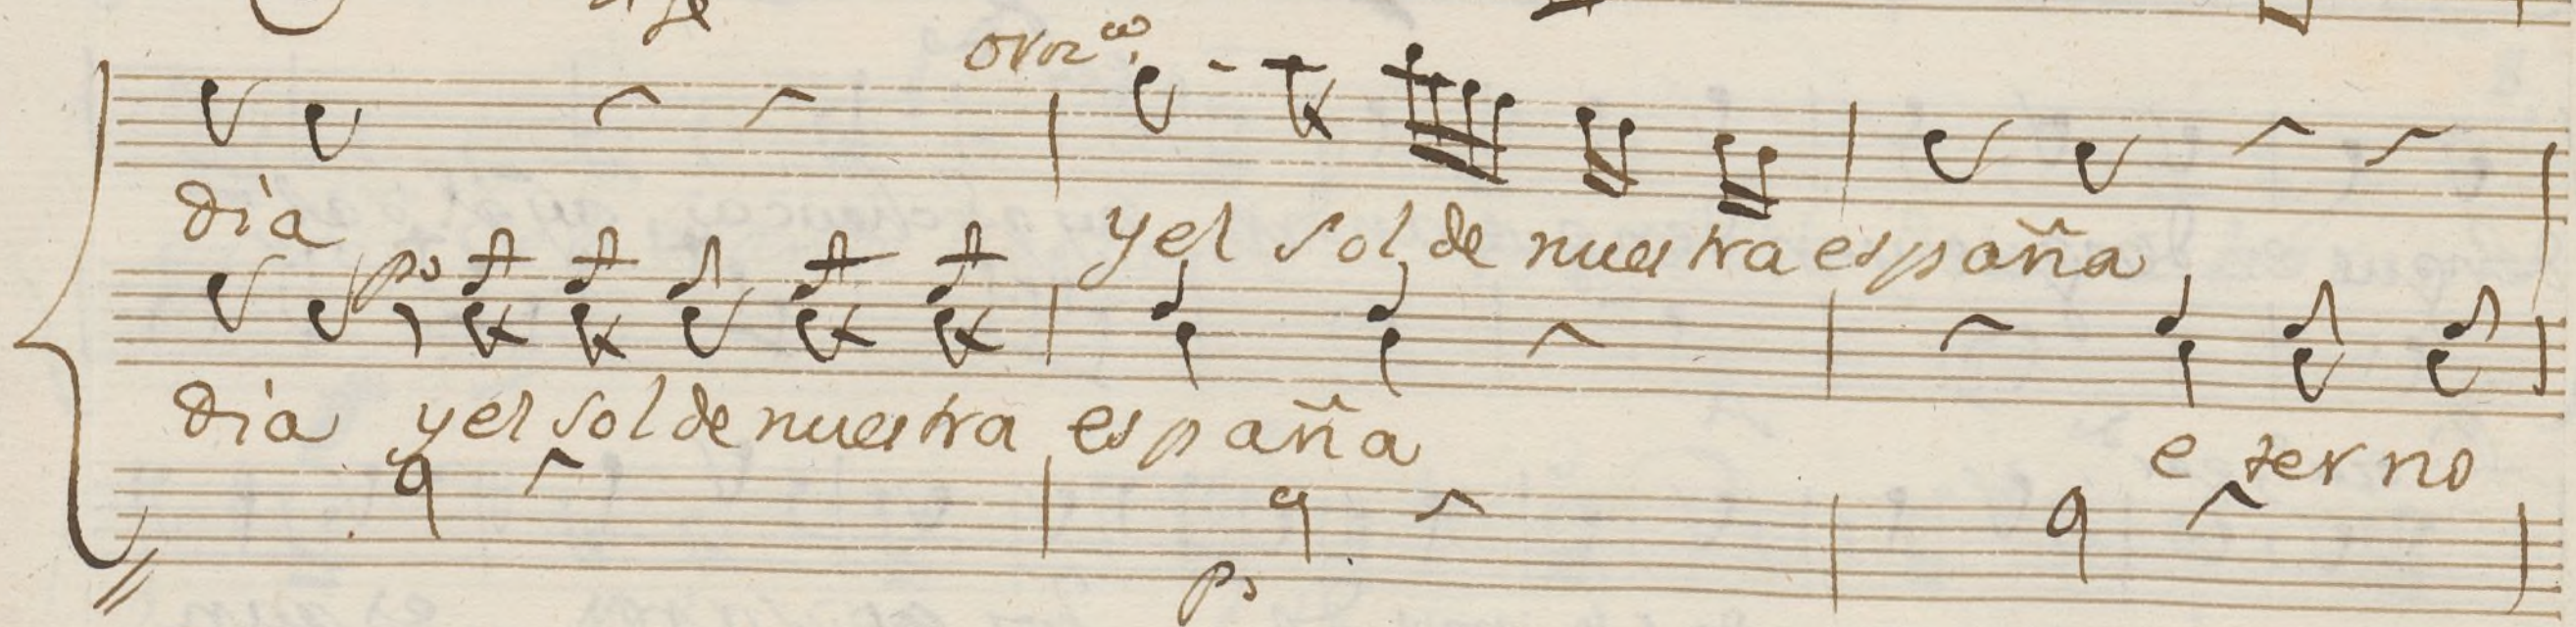 dìa yel sol de nuestra españa
po
dìa yel sol de nuestra españa eterno
po